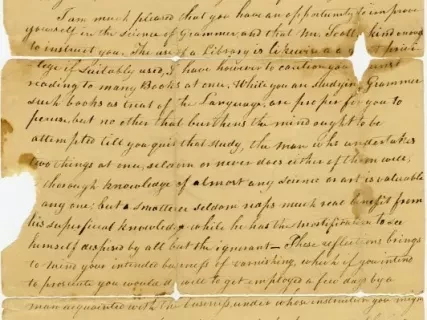 I am much pleased that you have an opportunity to improve
yourself in the Science of Grammer and that Mr. Scott kind enough
to instruct you. The use of a Library is likewise a privi
lege if Suitably used, I have however to caution you against
reading to many Books at once, While you are studying Grammer
such books as treat of the Language, are proper for you to
peruse, but no other that burthens the mind ought to be
attempted till you quit that study, the man who undertakes
two things at once, seldom or never does either of them well,
thorough knowledge of almost any science or art is valuable
any one; but a smatterer seldom reaps much real benefit from
his superficial knowledge while he has the mortification to see
himself despised by all but the ignorant — these reflections brings
to mind your intended business of varnishing, which if you intend
to prosecute you would do well to get employed a few days by a
man acquainted with the business, under whose instruction you might